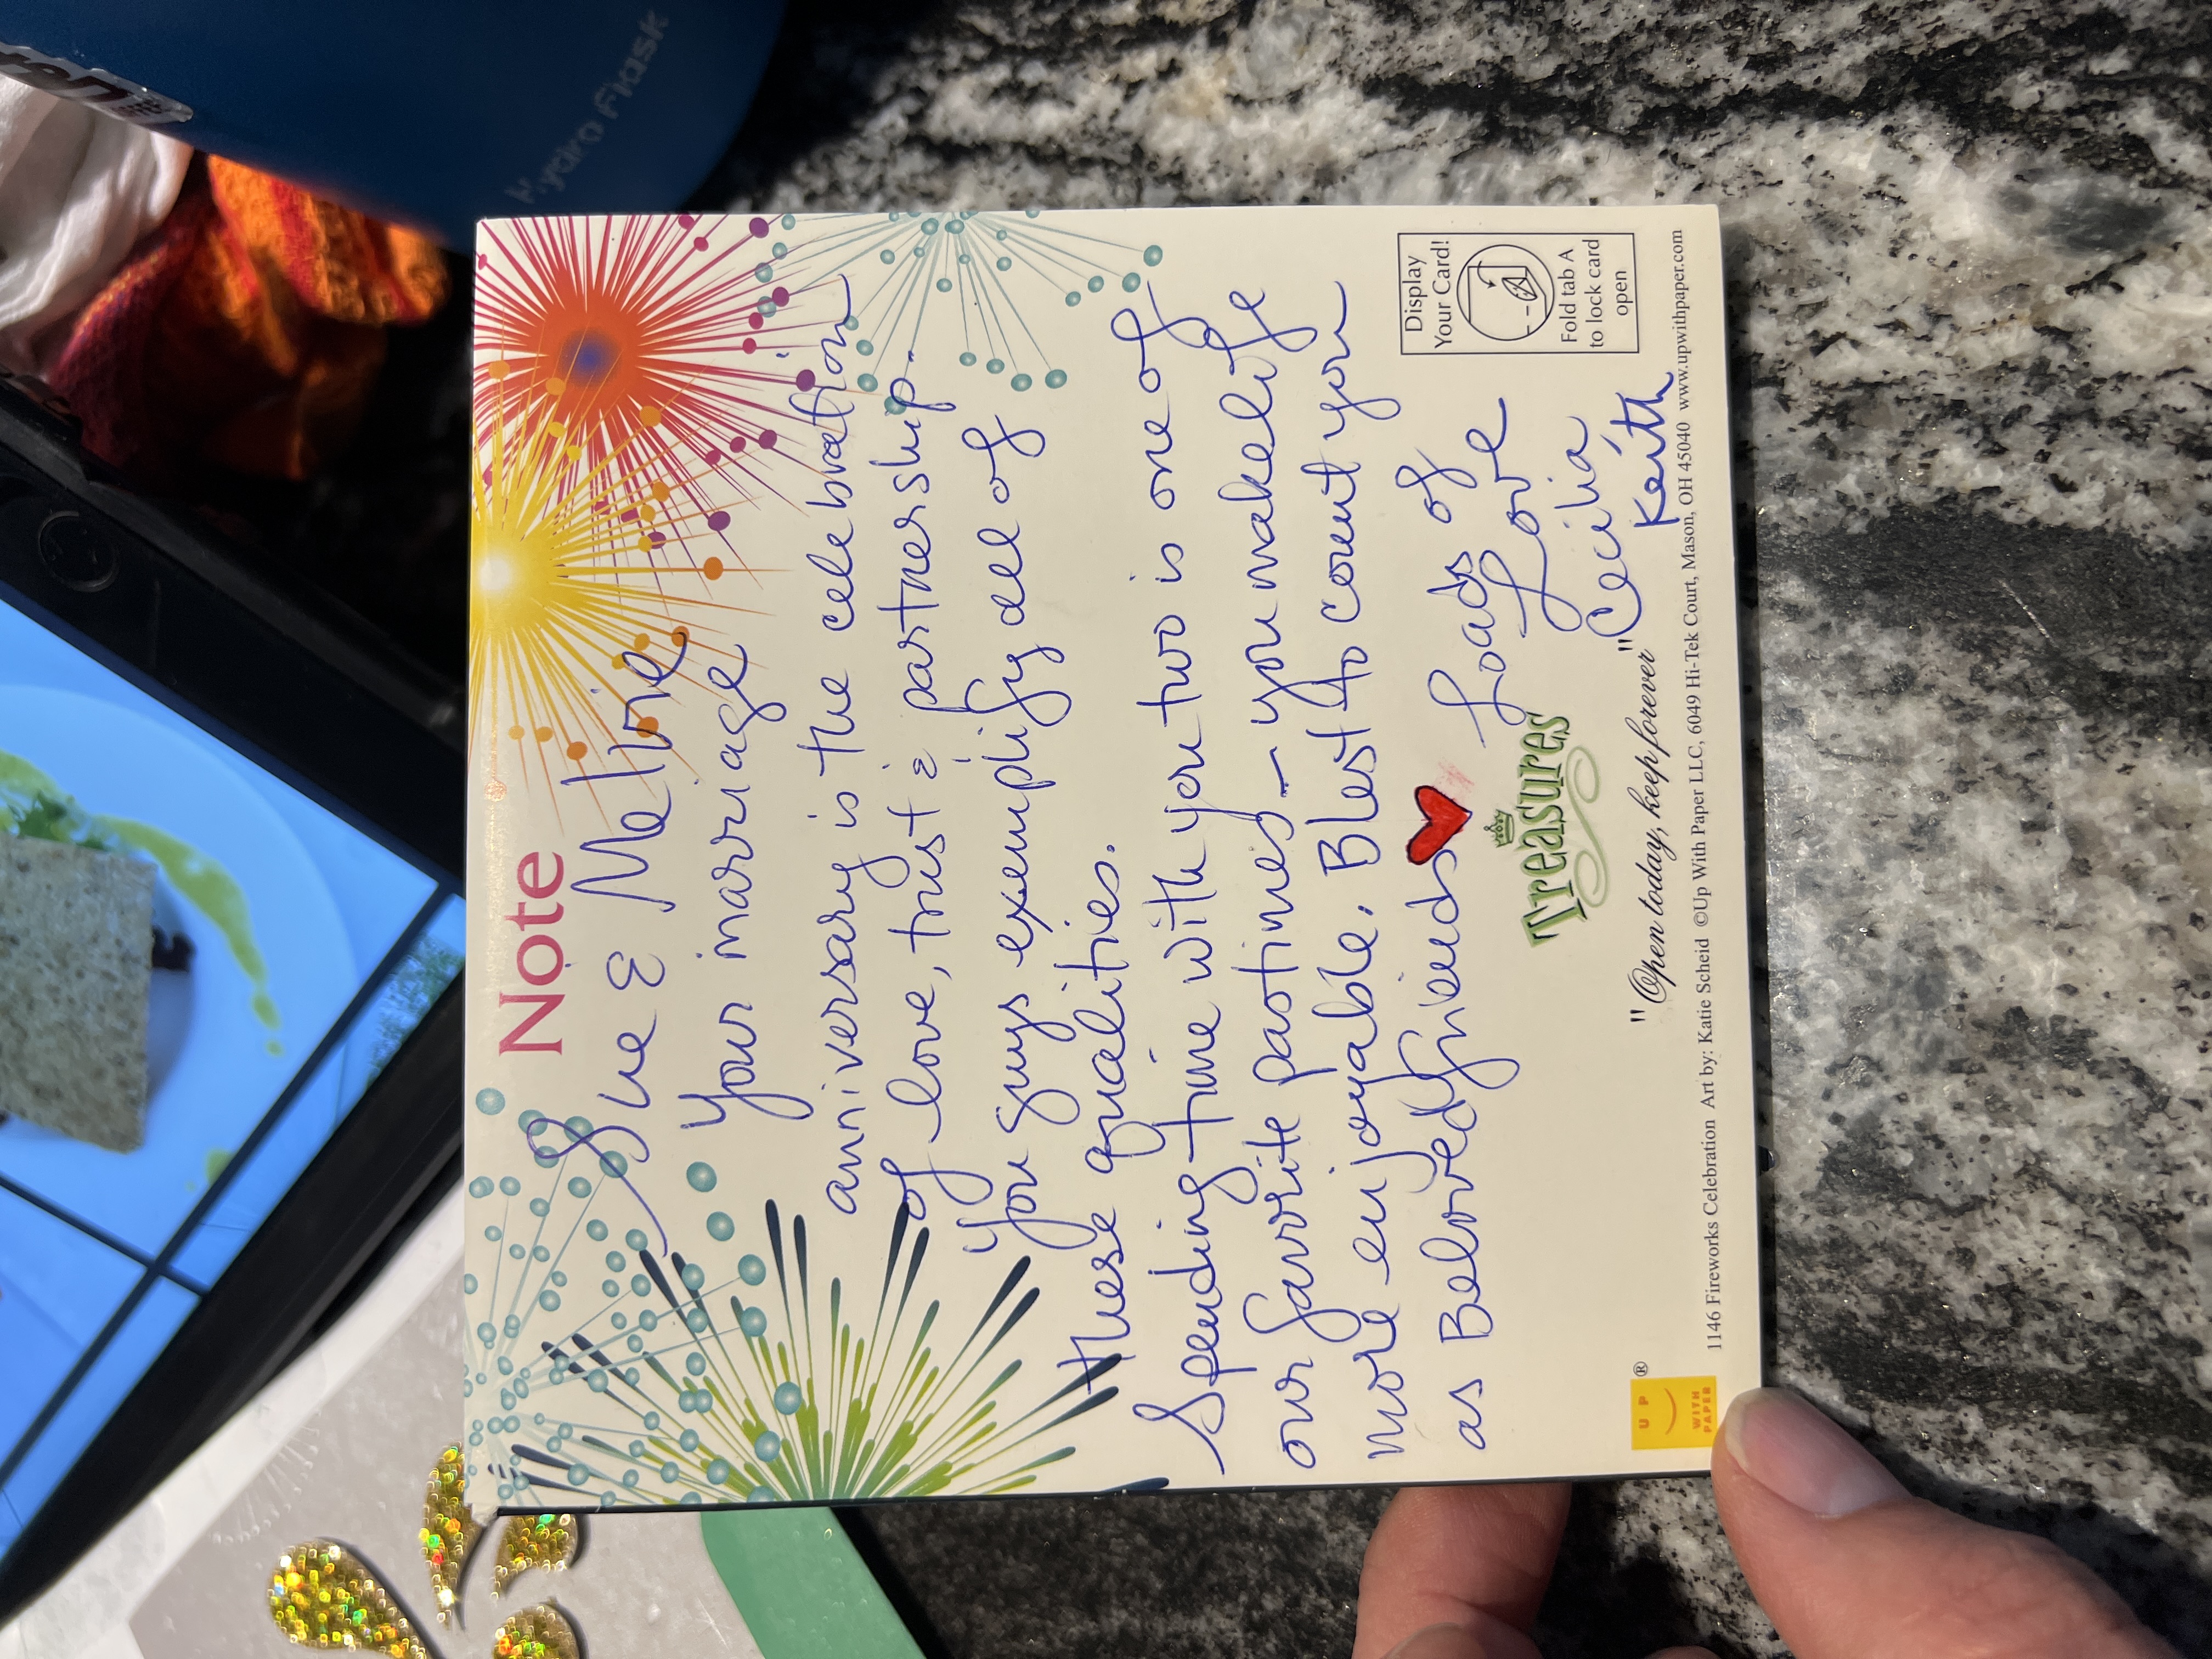 Note
Sue & Melvie
Your marriage
anniversary is the celebration
of love, trust & partnership.
You guys exemplify all of
these qualities.
Spending time with you two is one of
our favorite pastimes - you make life
more enjoyable. Blest to count you
as Beloved friends
Loads of
Love
Cecilia
Keith
Display
Your Card!
Fold tab A
to lock card
open
Treasures
"Open today, keep forever"
UP
WITH
PAPER
®
1146 Fireworks Celebration Art by: Katie Scheid ©Up With Paper LLC, 6049 Hi-Tek Court, Mason, OH 45040 www.upwithpaper.com
Hydro Flask